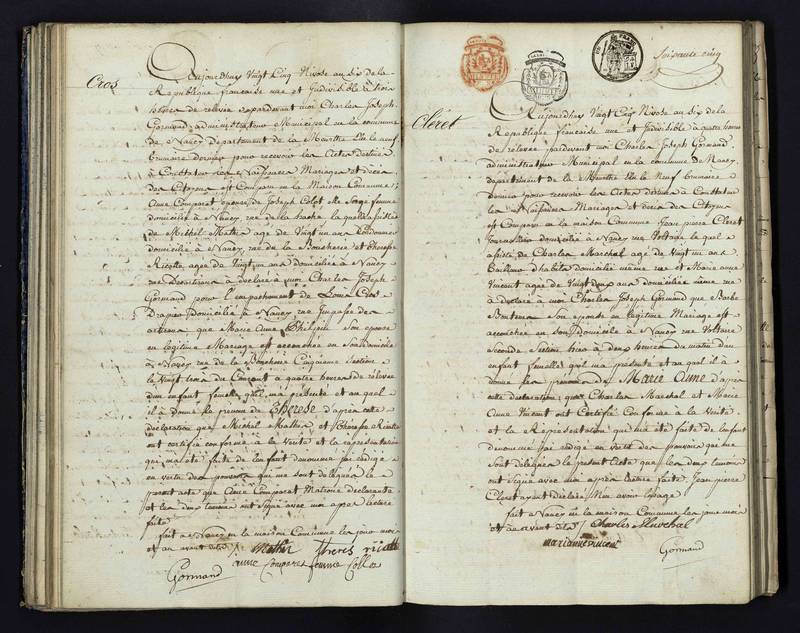 Cros
Aujourdhuy Vingt Cinq Nivose an Six de la
Republique francaise une et Indivisible à trois
heures de relevée pardevant moi Charles Joseph
Gormand administrateur Municipal en la commune
de Nancy departement de la Meurthe Elu le neuf
brumaire dernier pour recevoir les Actes destinés
à Constater les Naissances Mariages et décès
des Citoyens est Comparu en la Maison Commune
Anne Comparet épouse de Joseph Colot Me Serge femme
domiciliée à Nancy rue de la hache laquelle assistée
de Michel Mathis agé de Vingt un ans Cordonnier
domicilié à Nancy rue de la Boucherie et Therese
Ricatte agée de Vingt un ans domiciliée à Nancy
rue a déclaré à moi Charles Joseph
Gormand pour l'empechement de Louis Cros
Drapier domicilié à Nancy rue des
artisans que Marie Anne Philipin Son epouse
en legitime Mariage est accouchée en Son domicile
à Nancy rue de la Cinquieme Section
le Vingt trois du Courant à quatre heures de relevée
d'un enfant femelle qu'il ma présenté et au quel
il a donné le prenom de Therese d'après cette
declaration que Michel Mathis et Therese Ricatte
ont certifié conforme à la Verité et la représentation
qui ma été faite de l'enfant denommé j'ai rédigé
en vertu des pouvoirs qui me sont delegués le
present acte que Anne Comparet Matrone declarante
et les deux temoins ont Signé avec moi apres lecture
faite
fait à Nancy en la maison Commune les jour mois
et an avant dits
Mathis theres ricatte
anne Comparet femme Collot
Gormand
Soixante cinq
Cléret
Aujourdhuy Vingt Cinq Nivose an Six de la
Republique francaise une et Indivisible à quatre heures
de relevée pardevant moi Charles Joseph Gormand
administrateur Municipal en la commune de Nancy
departement de la Meurthe Elu le Neuf brumaire
dernier pour recevoir les Actes destinés à Constater
les Naissances Mariages et décès des Citoyens
est Comparu en la maison Commune Jean pierre Cleret
domicilié à Nancy rue Voltaire le quel
assisté de Charles Marchal agé de Vingt un ans
d'habits domicilié même rue et Marie anne
Vincent agée de Vingt deux ans domiciliée même rue
a déclaré à moi Charles Joseph Gormand que Barbe
Son épouse en legitime Mariage est
accouchée en Son domicile à Nancy rue Voltaire
Seconde Section hier à deux heures du matin d'un
enfant femelle qu'il ma présenté et au quel il à
donné les prenoms de Marie Anne d'après
cette déclaration que Charles Marchal et Marie
Anne Vincent ont Certifié Conforme à la Verité
et la Représentation qui ma été faite de l'enfant
denommé j'ai rédigé en vertu des pouvoirs qui me
sont delegués le present Acte que les deux temoins
ont Signé avec moi apres lecture faite Jean pierre
Cleret ayant déclaré N'en avoir l'usage
fait à Nancy en la maison Commune les jour mois
et an avant dits Charles Marchal
marianne vincent
Gormand